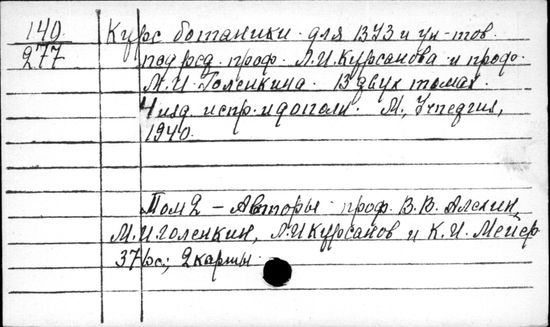 140
277
Курс ботаники для ВУЗ и ун-тов.
под ред. проф. Л.И. Курсанова и проф.
М.И. Голенкина. В двух томах.
4 изд. испр. и дополн. М., Учпедгиз,
1940.
Том 2 – Авторы: проф. В.В. Алехин,
М.И. Голенкин, Л.И Курсанов и К.И. Мейер
376 с; 2 карты.